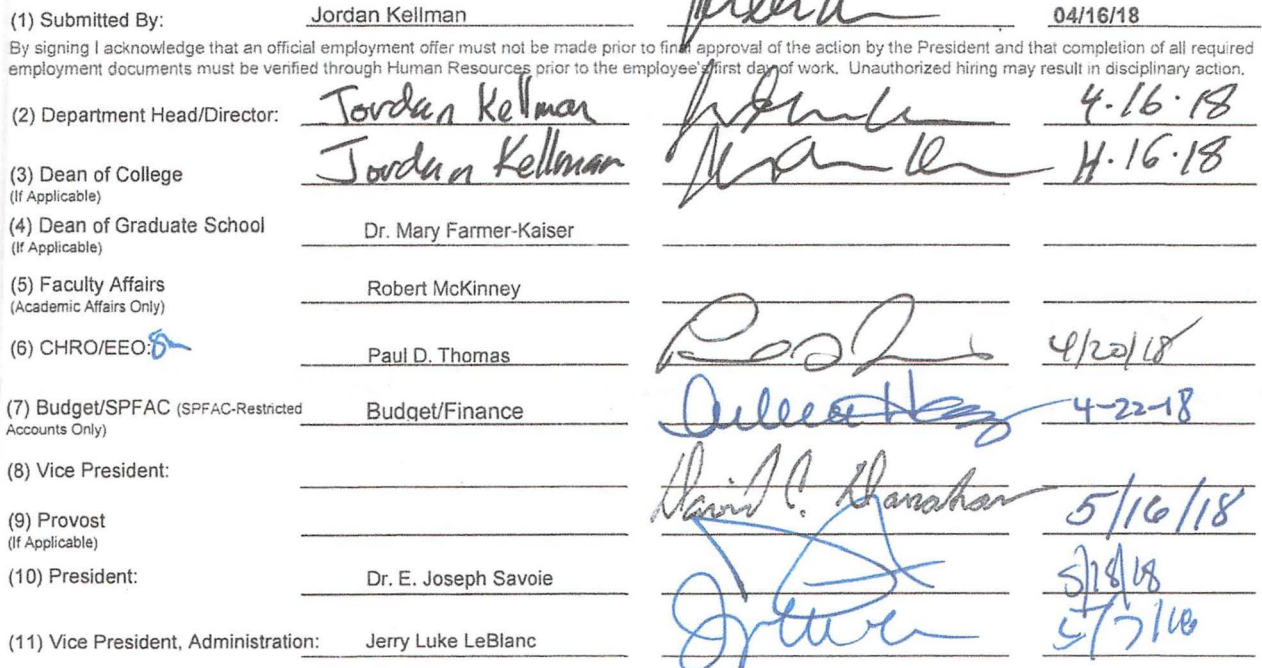 (1) Submitted By: Jordan Kellman 04/16/18
By signing I acknowledge that an official employment offer must not be made prior to final approval of the action by the President and that completion of all required
employment documents must be verified through Human Resources prior to the employee's first day of work. Unauthorized hiring may result in disciplinary action.
(2) Department Head/Director: Jordan Kellman 4.16.18
(3) Dean of College Jordan Kellman 4.16.18
(If Applicable)
(4) Dean of Graduate School Dr. Mary Farmer-Kaiser
(If Applicable)
(5) Faculty Affairs Robert McKinney
(Academic Affairs Only)
(6) CHRO/EEO: Paul D. Thomas 4/20/18
(7) Budget/SPFAC (SPFAC-Restricted Budget/Finance 4-22-18
Accounts Only)
(8) Vice President:
(9) Provost David C. Danahar 5/16/18
(If Applicable)
(10) President: Dr. E. Joseph Savoie 5/18/18
(11) Vice President, Administration: Jerry Luke LeBlanc